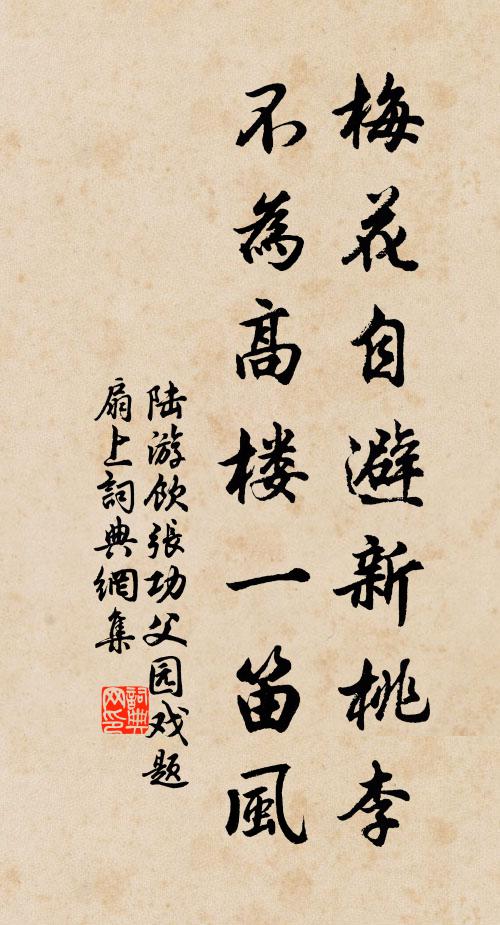 梅花自避新桃李
不為高楼一笛風
陆游飲張功父园戏题
扇上詞典網集
詞典网印